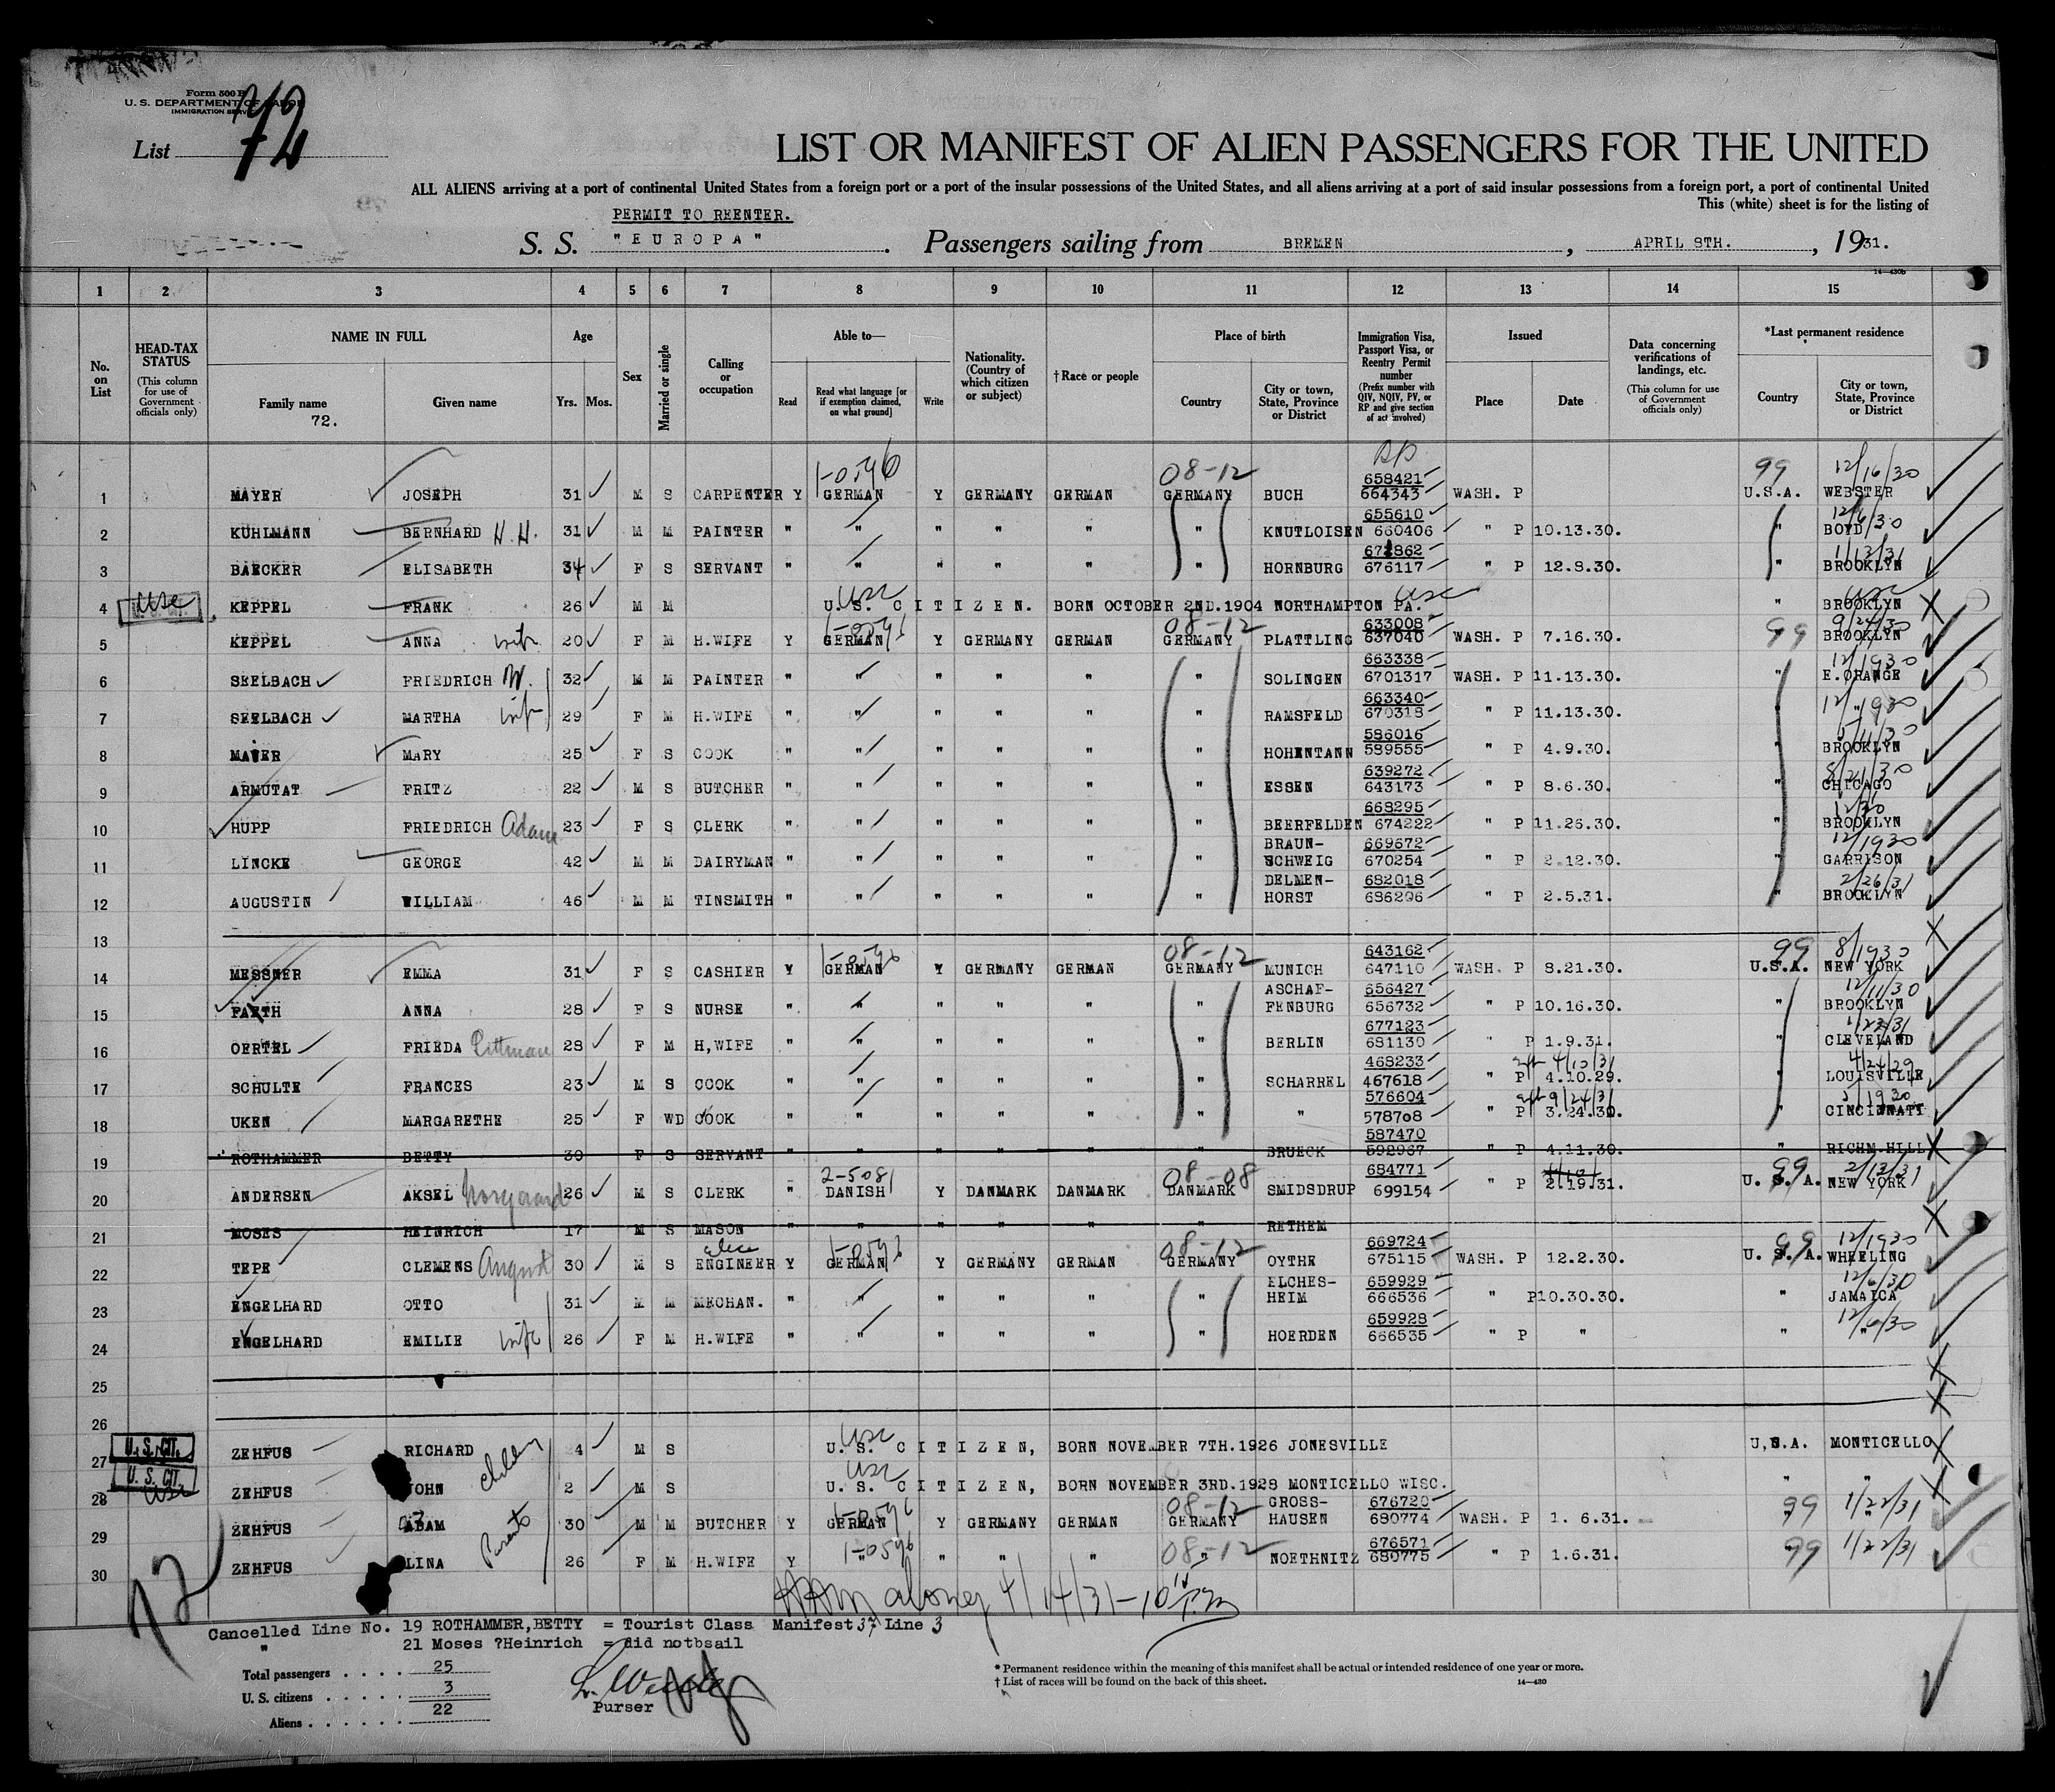 Form 500 B
U. S. DEPARTMENT OF LABOR
IMMIGRATION SERVICE
List 72
LIST OR MANIFEST OF ALIEN PASSENGERS FOR THE UNITED
ALL ALIENS arriving at a port of continental United States from a foreign port or a port of the insular possessions of the United States, and all aliens arriving at a port of said insular possessions from a foreign port, a port of continental United
This (white) sheet is for the listing of
PERMIT TO REENTER.
S. S. "EUROPA". Passengers sailing from BREMEN, APRIL 8TH., 1931.
14—430b
1 2 3 4 5 6 7 8 9 10 11 12 13 14 15
No. on List
HEAD-TAX STATUS (This column for use of Government officials only)
NAME IN FULL Family name 72. Given name
Age Yrs. Mos.
Sex
Married or single
Calling or occupation
Able to— Read Read what language [or if exemption claimed, on what ground] Write
Nationality. (Country of which citizen or subject)
†Race or people
Place of birth Country City or town, State, Province or District
Immigration Visa, Passport Visa, or Reentry Permit number (Prefix number with QIV, NQIV, PV, or RP and give section of act involved)
Issued Place Date
Data concerning verifications of landings, etc. (This column for use of Government officials only)
*Last permanent residence Country City or town, State, Province or District
1-0546 08-12 RP 658421 99 12/16/30
1 MAYER JOSEPH 31 M S CARPENTER Y GERMAN Y GERMANY GERMAN GERMANY BUCH 664343 WASH. P U.S.A. WEBSTER
655610 12/6/30
2 KUHLMANN BERNHARD H.H. 31 M M PAINTER " " " " " " KNUTLOISEN 660406 " P 10.13.30. " BOYD
672862 1/13/31
3 BAECKER ELISABETH 34 F S SERVANT " " " " " " HORNBURG 676117 " P 12.8.30. " BROOKLYN
usc usc usc usc
4 KEPPEL FRANK 26 M M U.S. CITIZEN. BORN OCTOBER 2ND.1904 NORTHAMPTON PA. " BROOKLYN
08-12 633008 9/24/30
5 KEPPEL ANNA wife 20 F M H.WIFE Y GERMAN Y GERMANY GERMAN GERMANY PLATTLING 637040 WASH. P 7.16.30. 99 BROOKLYN
663338 12/1930
6 SEELBACH FRIEDRICH W. 32 M M PAINTER " " " " " " SOLINGEN 6701317 WASH. P 11.13.30. " E.ORANGE
663340 12/1930
7 SEELBACH MARTHA wife 29 F M H.WIFE " " " " " " RAMSFELD 670318 " P 11.13.30. " "
586016
8 MAYER MARY 25 F S COOK " " " " " " HOHENTANN 589555 " P 4.9.30. " BROOKLYN
639272 8/21/30
9 ARMUTAT FRITZ 22 M S BUTCHER " " " " " " ESSEN 643173 " P 8.6.30. " CHICAGO
668295
10 HUPP FRIEDRICH Adam 23 F S CLERK " " " " " " BEERFELDEN 674222 " P 11.26.30. " BROOKLYN
BRAUN- 669672 12/1930
11 LINCKE GEORGE 42 M M DAIRYMAN " " " " " " SCHWEIG 670254 " P 2.12.30. " GARRISON
DELMEN- 682018 2/26/31
12 AUGUSTIN WILLIAM 46 M M TINSMITH " " " " " " HORST 686296 " P 2.5.31. " BROOKLYN
13
1-0546 08-12 643162 99 8/1930
14 MESSNER EMMA 31 F S CASHIER Y GERMAN Y GERMANY GERMAN GERMANY MUNICH 647110 WASH. P 8.21.30. U.S.A. NEW YORK
ASCHAF- 656427 12/11/30
15 ANNA 28 F S NURSE " " " " " " FENBURG 656732 " P 10.16.30. " BROOKLYN
677123 1/22/31
16 OERTEL FRIEDA Pittman 28 F M H,WIFE " " " " " " BERLIN 681130 " P 1.9.31. " CLEVELAND
468233 4/10/31 4/24/29
17 SCHULTE FRANCES 23 M S COOK " " " " " " SCHARREL 467618 " P 4.10.29. " LOUISVILLE
576604 9/24/31
18 UKEN MARGARETHE 25 F WD COOK " " " " " " " 578708 " P 3.24.30. " CINCINNATI
587470
19 ROTHAMMER BETTY 30 F S SERVANT " " " " " " BRUECK 592967 " P 4.11.30. " RICHM.HILL
2-5081 08-08 684771 99 2/13/31
20 ANDERSEN AKSEL Norgaard 26 M S CLERK " DANISH Y DANMARK DANMARK DANMARK SMIDSDRUP 699154 " P 2.19.31. U. S. A. NEW YORK
21 MOSES HEINRICH 17 M S MASON " " " " " " RETHEM
elec 1-0546 08-12 669724 99 12/1930
22 TEPE CLEMENS August 30 M S ENGINEER Y GERMAN Y GERMANY GERMAN GERMANY OYTHE 675115 WASH. P 12.2.30. U. S. A. WHEELING
ELCHES- 659929 12/6/30
23 ENGELHARD OTTO 31 M M MECHAN. " " " " " " HEIM 666536 " P 10.30.30. " JAMAICA
659928 12/6/30
24 ENGELHARD EMILIE wife 26 F M H.WIFE " " " " " " HOERDEN 666535 " P " " "
25
26
U. S. CIT. usc
27 ZEHFUS RICHARD children 4 M S U.S. CITIZEN, BORN NOVEMBER 7TH.1926 JONESVILLE U,S.A. MONTICELLO
U. S. CIT. usc usc
28 ZEHFUS JOHN 2 M S U.S. CITIZEN, BORN NOVEMBER 3RD.1928 MONTICELLO WISC. " "
1-0546 08-12 GROSS- 676720 99 1/22/31
29 ZEHFUS ADAM Parents 30 M M BUTCHER Y GERMAN Y GERMANY GERMAN GERMANY HAUSEN 680774 WASH. P 1. 6.31. " "
1-0546 08-12 676571 99 1/22/31
30 ZEHFUS LINA 26 F M H.WIFE Y " " " " " NOETHNITZ 680775 " P 1.6.31. "
72
4/14/31-10
Cancelled Line No. 19 ROTHAMMER,BETTY = Tourist Class Manifest 37 Line 3
" 21 Moses ?Heinrich = did notbsail
Total passengers . . . . 25
U. S. citizens . . . . . 3
Aliens . . . . . . 22
Purser
* Permanent residence within the meaning of this manifest shall be actual or intended residence of one year or more.
† List of races will be found on the back of this sheet.
14—430